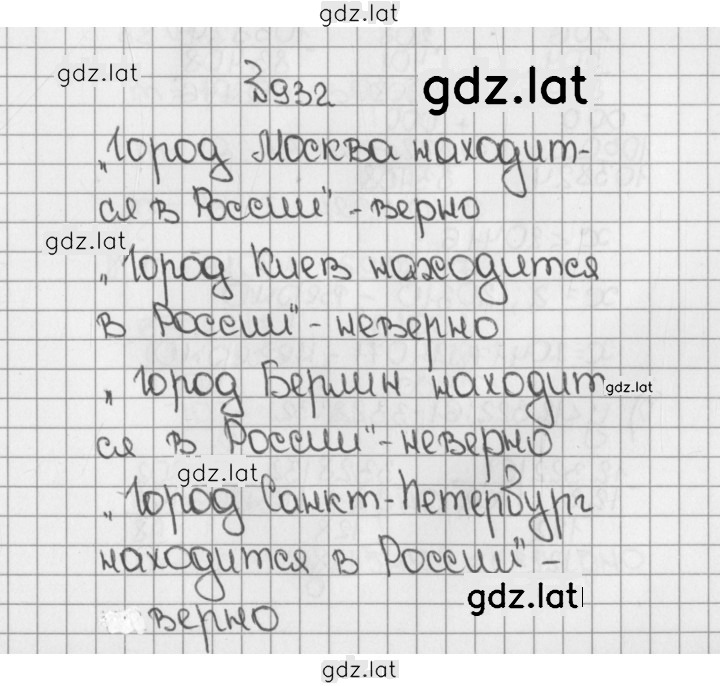 gdz.lat
gdz.lat
gdz.lat
№932
„Город Москва находит-
ся в России" - верно
gdz.lat
„Город Киев находится
в России" - неверно
„Город Берлин находит
gdz.lat
ся в России" - неверно
gdz.lat
„Город Санкт-Петербург
находится в России" -
gdz.lat
верно
gdz.lat